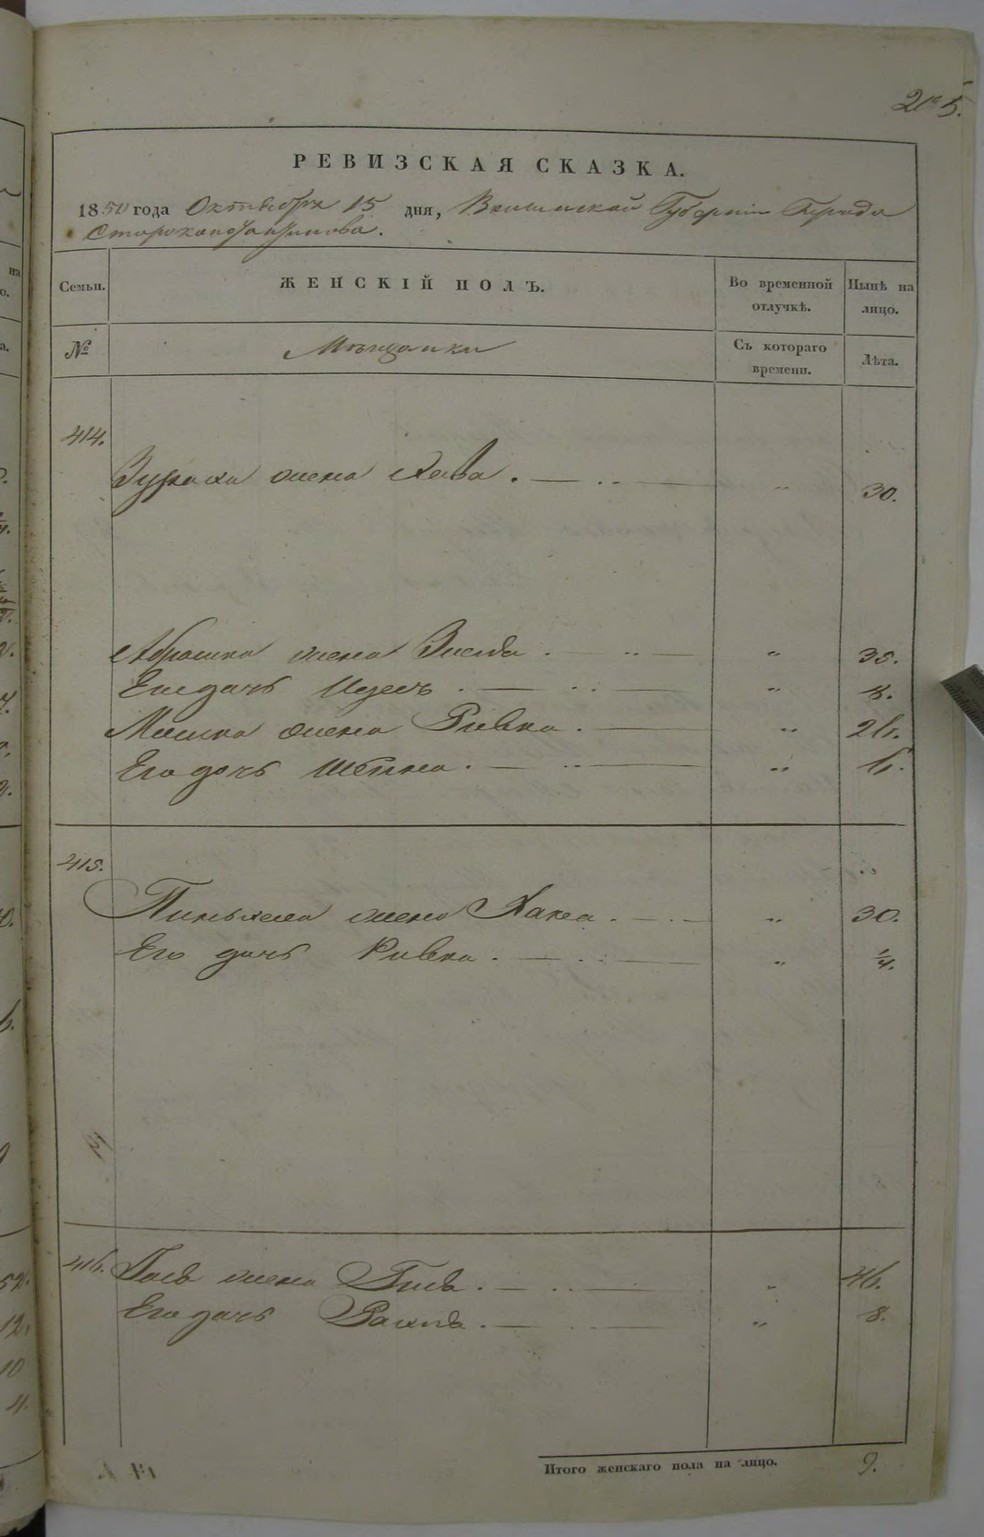 205.
РЕВИЗСКАЯ СКАЗКА.
1850 года Октября 15 дня, Волынской Губерніи Города
Староконстантинова.
Семьи. ЖЕНСКІЙ ПОЛЪ. Во временной отлучкѣ. Нынѣ на лицо.
№ Мѣщанки Съ котораго времени. Лѣта.
414.
жена Хава. 30.
Абрамка жена Злота. 35.
Его дочь 8.
Мошка жена Ривка. 26.
Его дочь Шейна. 6.
415.
Пиньхаса жена 30.
Его дочь Ривка. 1/4.
416. жена 46.
Его дочь 8.
Итого женскаго пола на лицо. 9.